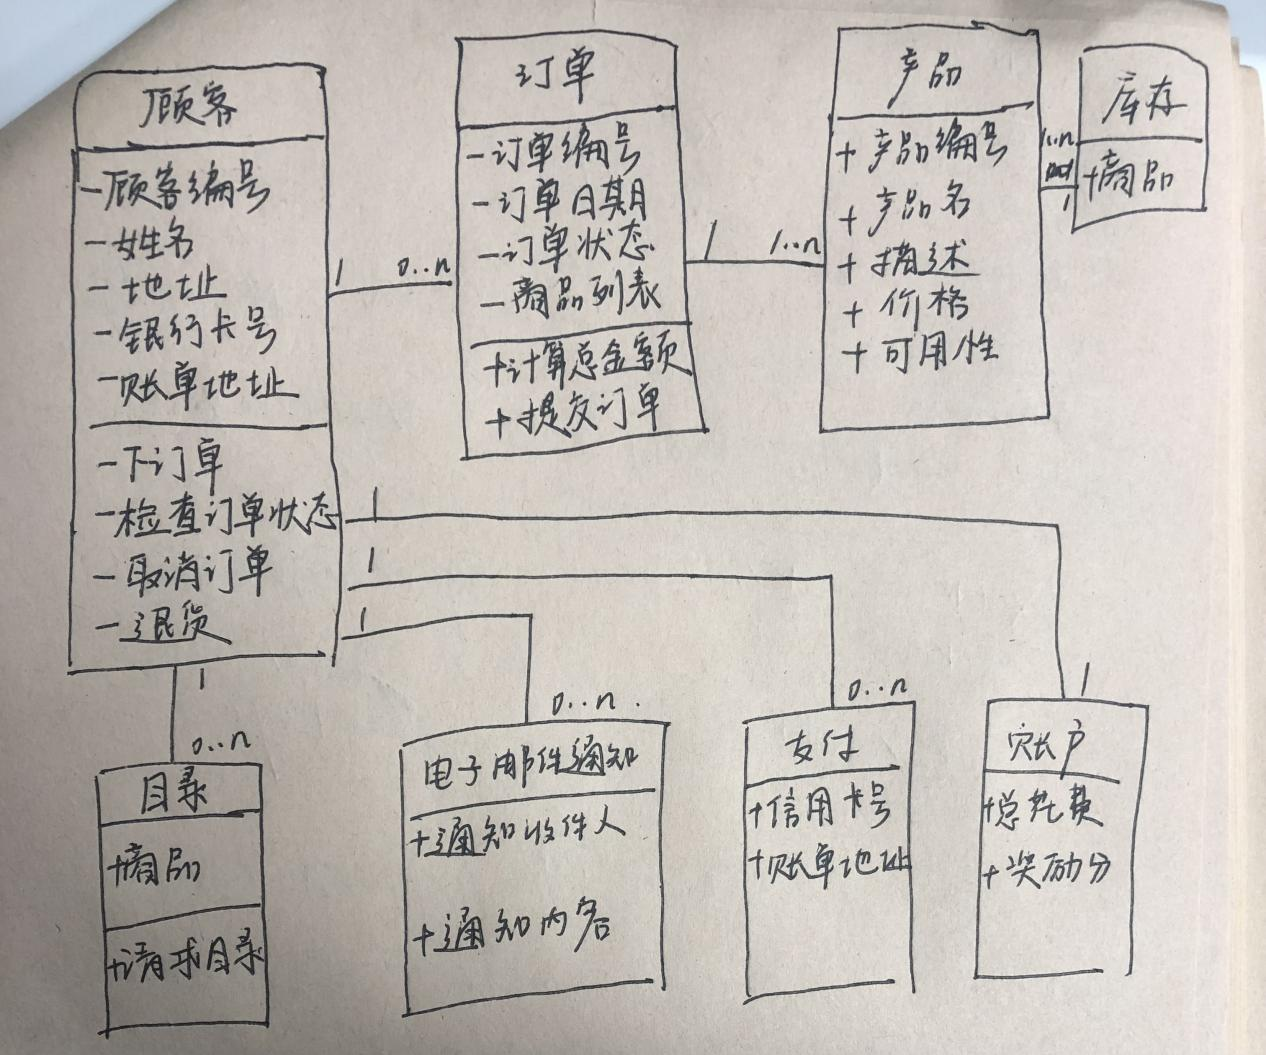 顾客
-顾客编号
-姓名
-地址
-银行卡号
-账单地址
-下订单
-检查订单状态
-取消订单
-退货
订单
-订单编号
-订单日期
-订单状态
-商品列表
+计算总金额
+提交订单
产品
+产品编号
+产品名
+描述
+价格
+可用性
库存
+商品
1
0..n
1
1..n
1..n
1
1
1
1
1
0..n
0..n
0..n
1
目录
+商品
+请求目录
电子邮件通知
+通知收件人
+通知内容
支付
+信用卡号
+账单地址
账户
+总花费
+奖励分